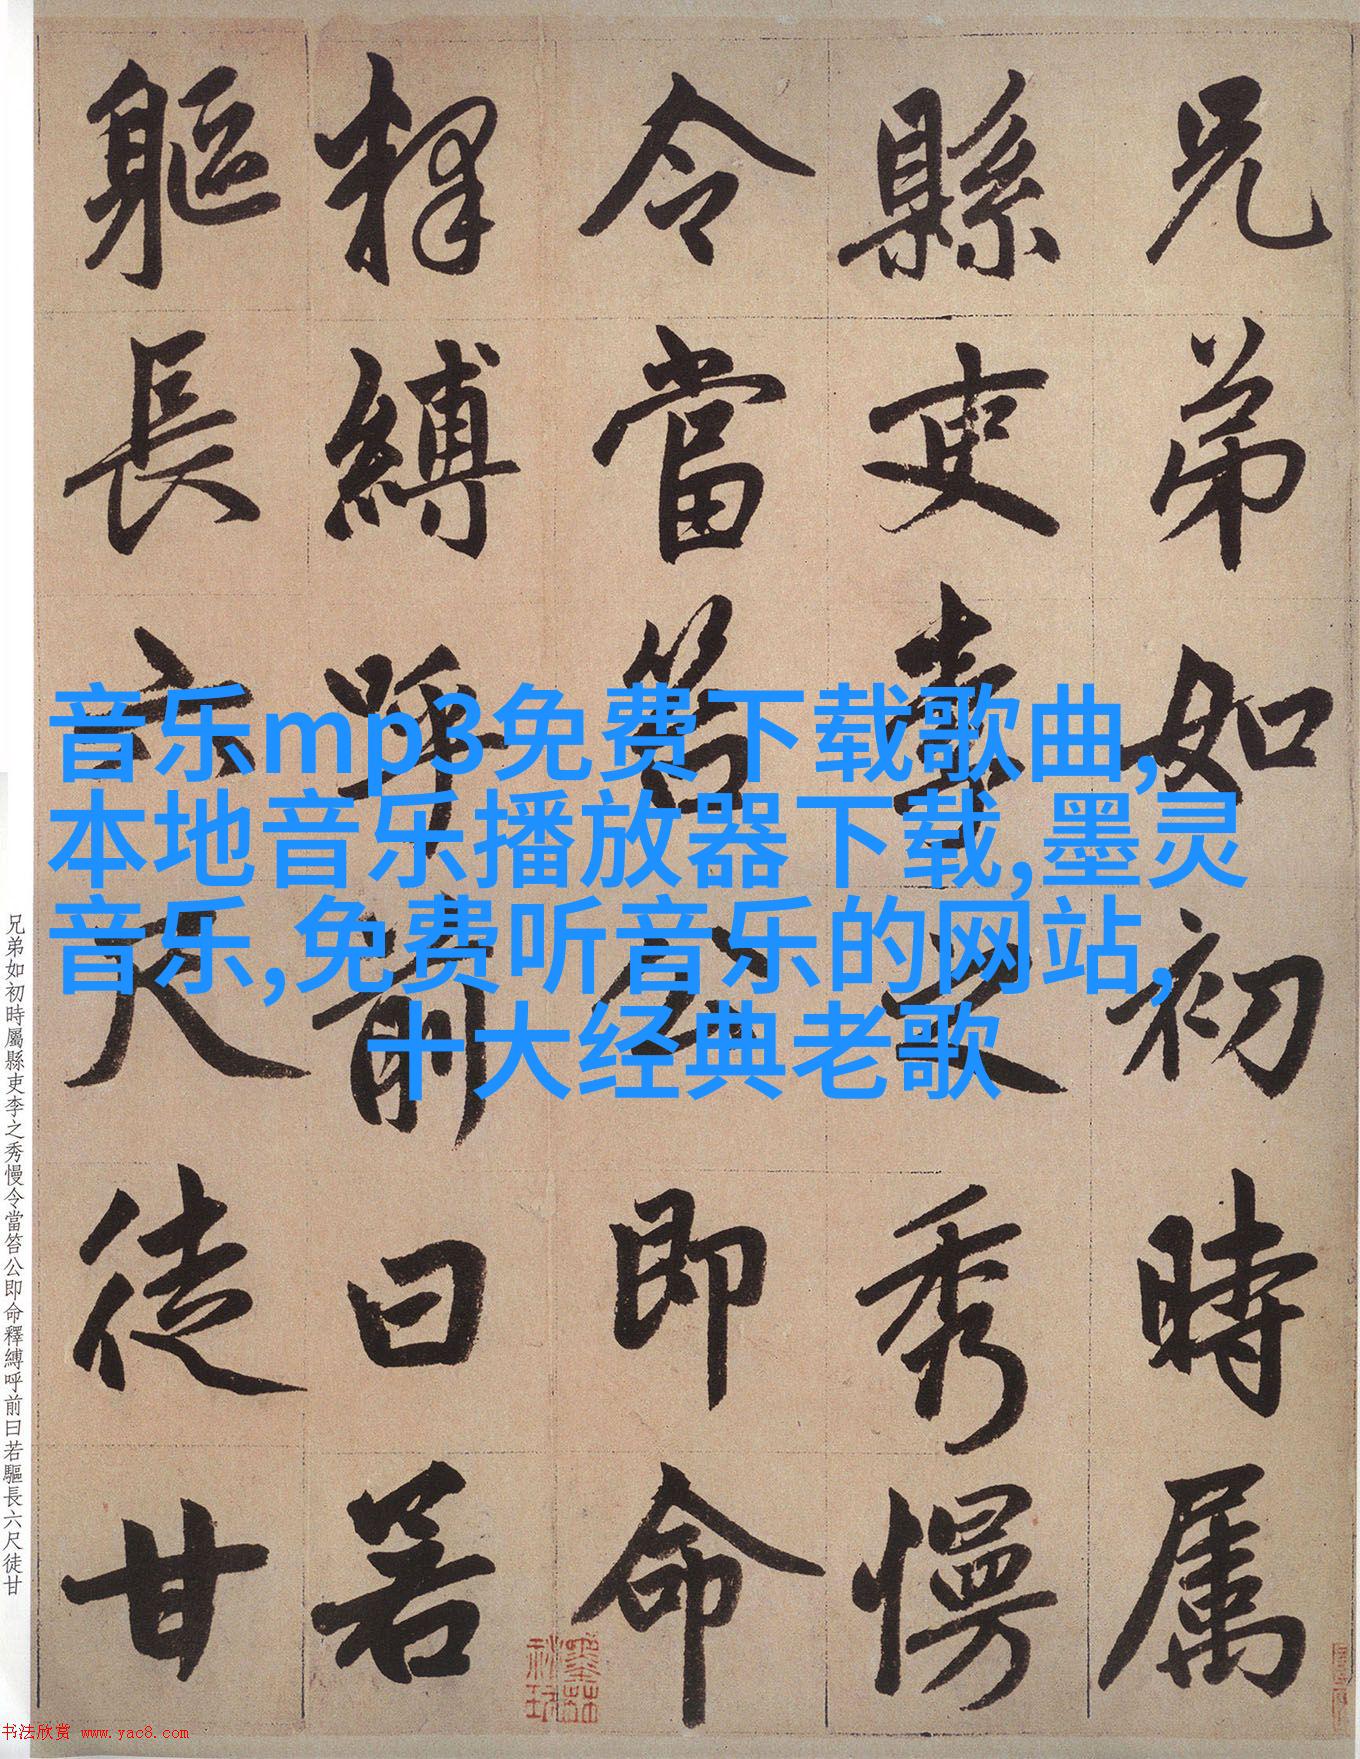 兄弟如初時属
縣吏李之秀慢
令當笞公即命
釋縛呼前曰若
軀長六尺徒甘
音乐mp3免费下载歌曲,
本地音乐播放器下载,墨灵
音乐,免费听音乐的网站,
十大经典老歌
兄弟如初時屬縣吏李之秀慢令當笞公即命釋縛呼前曰若驅長六尺徒甘
书法欣赏 www.yac8.com